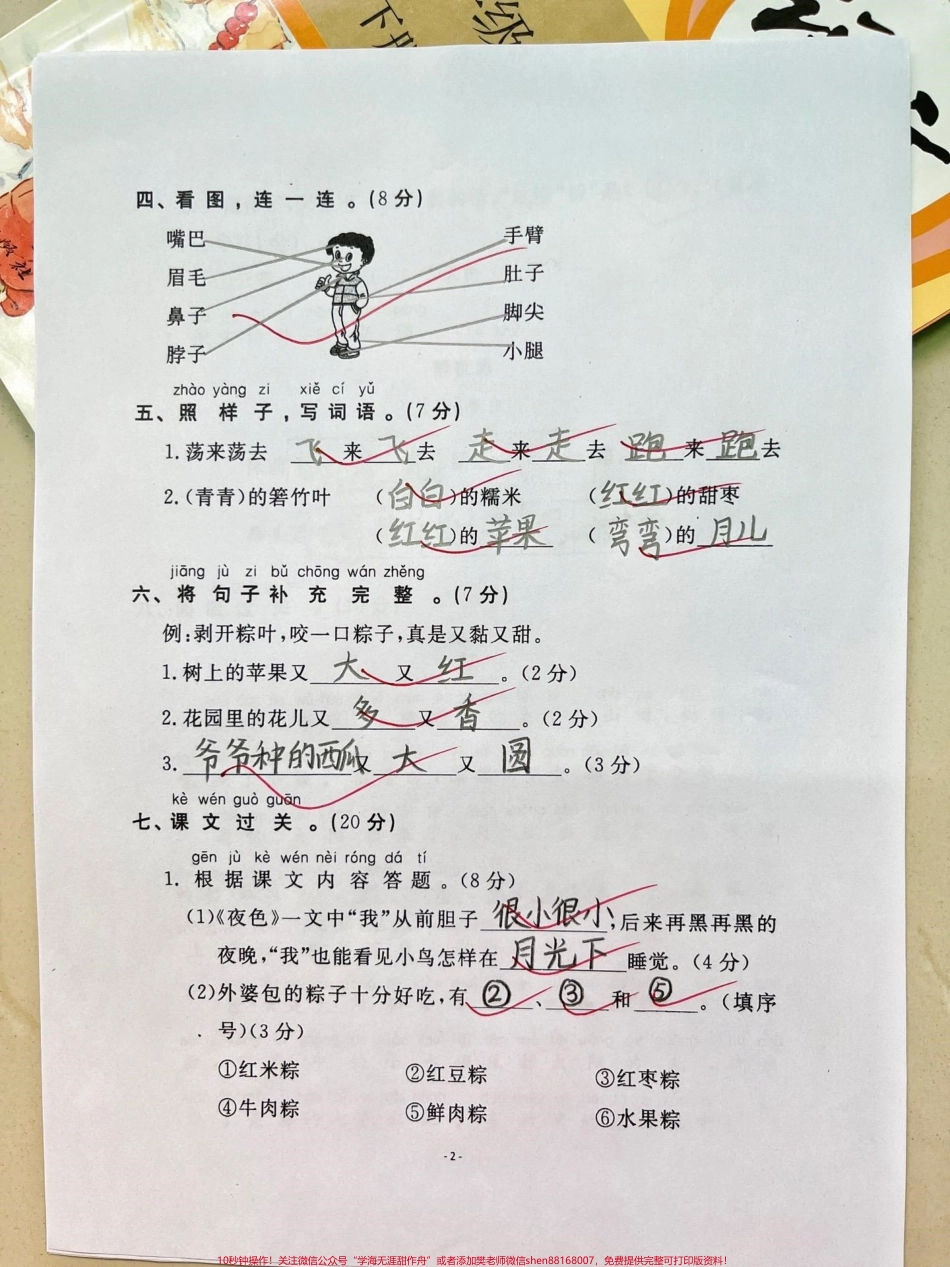 级
下册
四、看图,连一连。(8分)
嘴巴 手臂
眉毛 肚子
鼻子 脚尖
脖子 小腿
zhào yàng zi xiě cí yǔ
五、照样子,写词语。(7分)
1.荡来荡去 飞来飞去 走来走去 跑来跑去
2.(青青)的箬竹叶 (白白)的糯米 (红红)的甜枣
(红红)的苹果 (弯弯)的月儿
jiāng jù zi bǔ chōng wán zhěng
六、将句子补充完整。(7分)
例:剥开粽叶,咬一口粽子,真是又黏又甜。
1.树上的苹果又大又红。(2分)
2.花园里的花儿又多又香。(2分)
3.爷爷种的西瓜又大又圆。(3分)
kè wén guò guān
七、课文过关。(20分)
gēn jù kè wén nèi róng dá tí
1.根据课文内容答题。(8分)
(1)《夜色》一文中“我”从前胆子很小很小,后来再黑再黑的
夜晚,“我”也能看见小鸟怎样在月光下睡觉。(4分)
(2)外婆包的粽子十分好吃,有②、③和⑤。(填序
号)(3分)
①红米粽 ②红豆粽 ③红枣粽
④牛肉粽 ⑤鲜肉粽 ⑥水果粽
-2-
10秒钟操作!关注微信公众号“学海无涯甜作舟”或者添加樊老师微信shen88168007,免费提供完整可打印版资料!